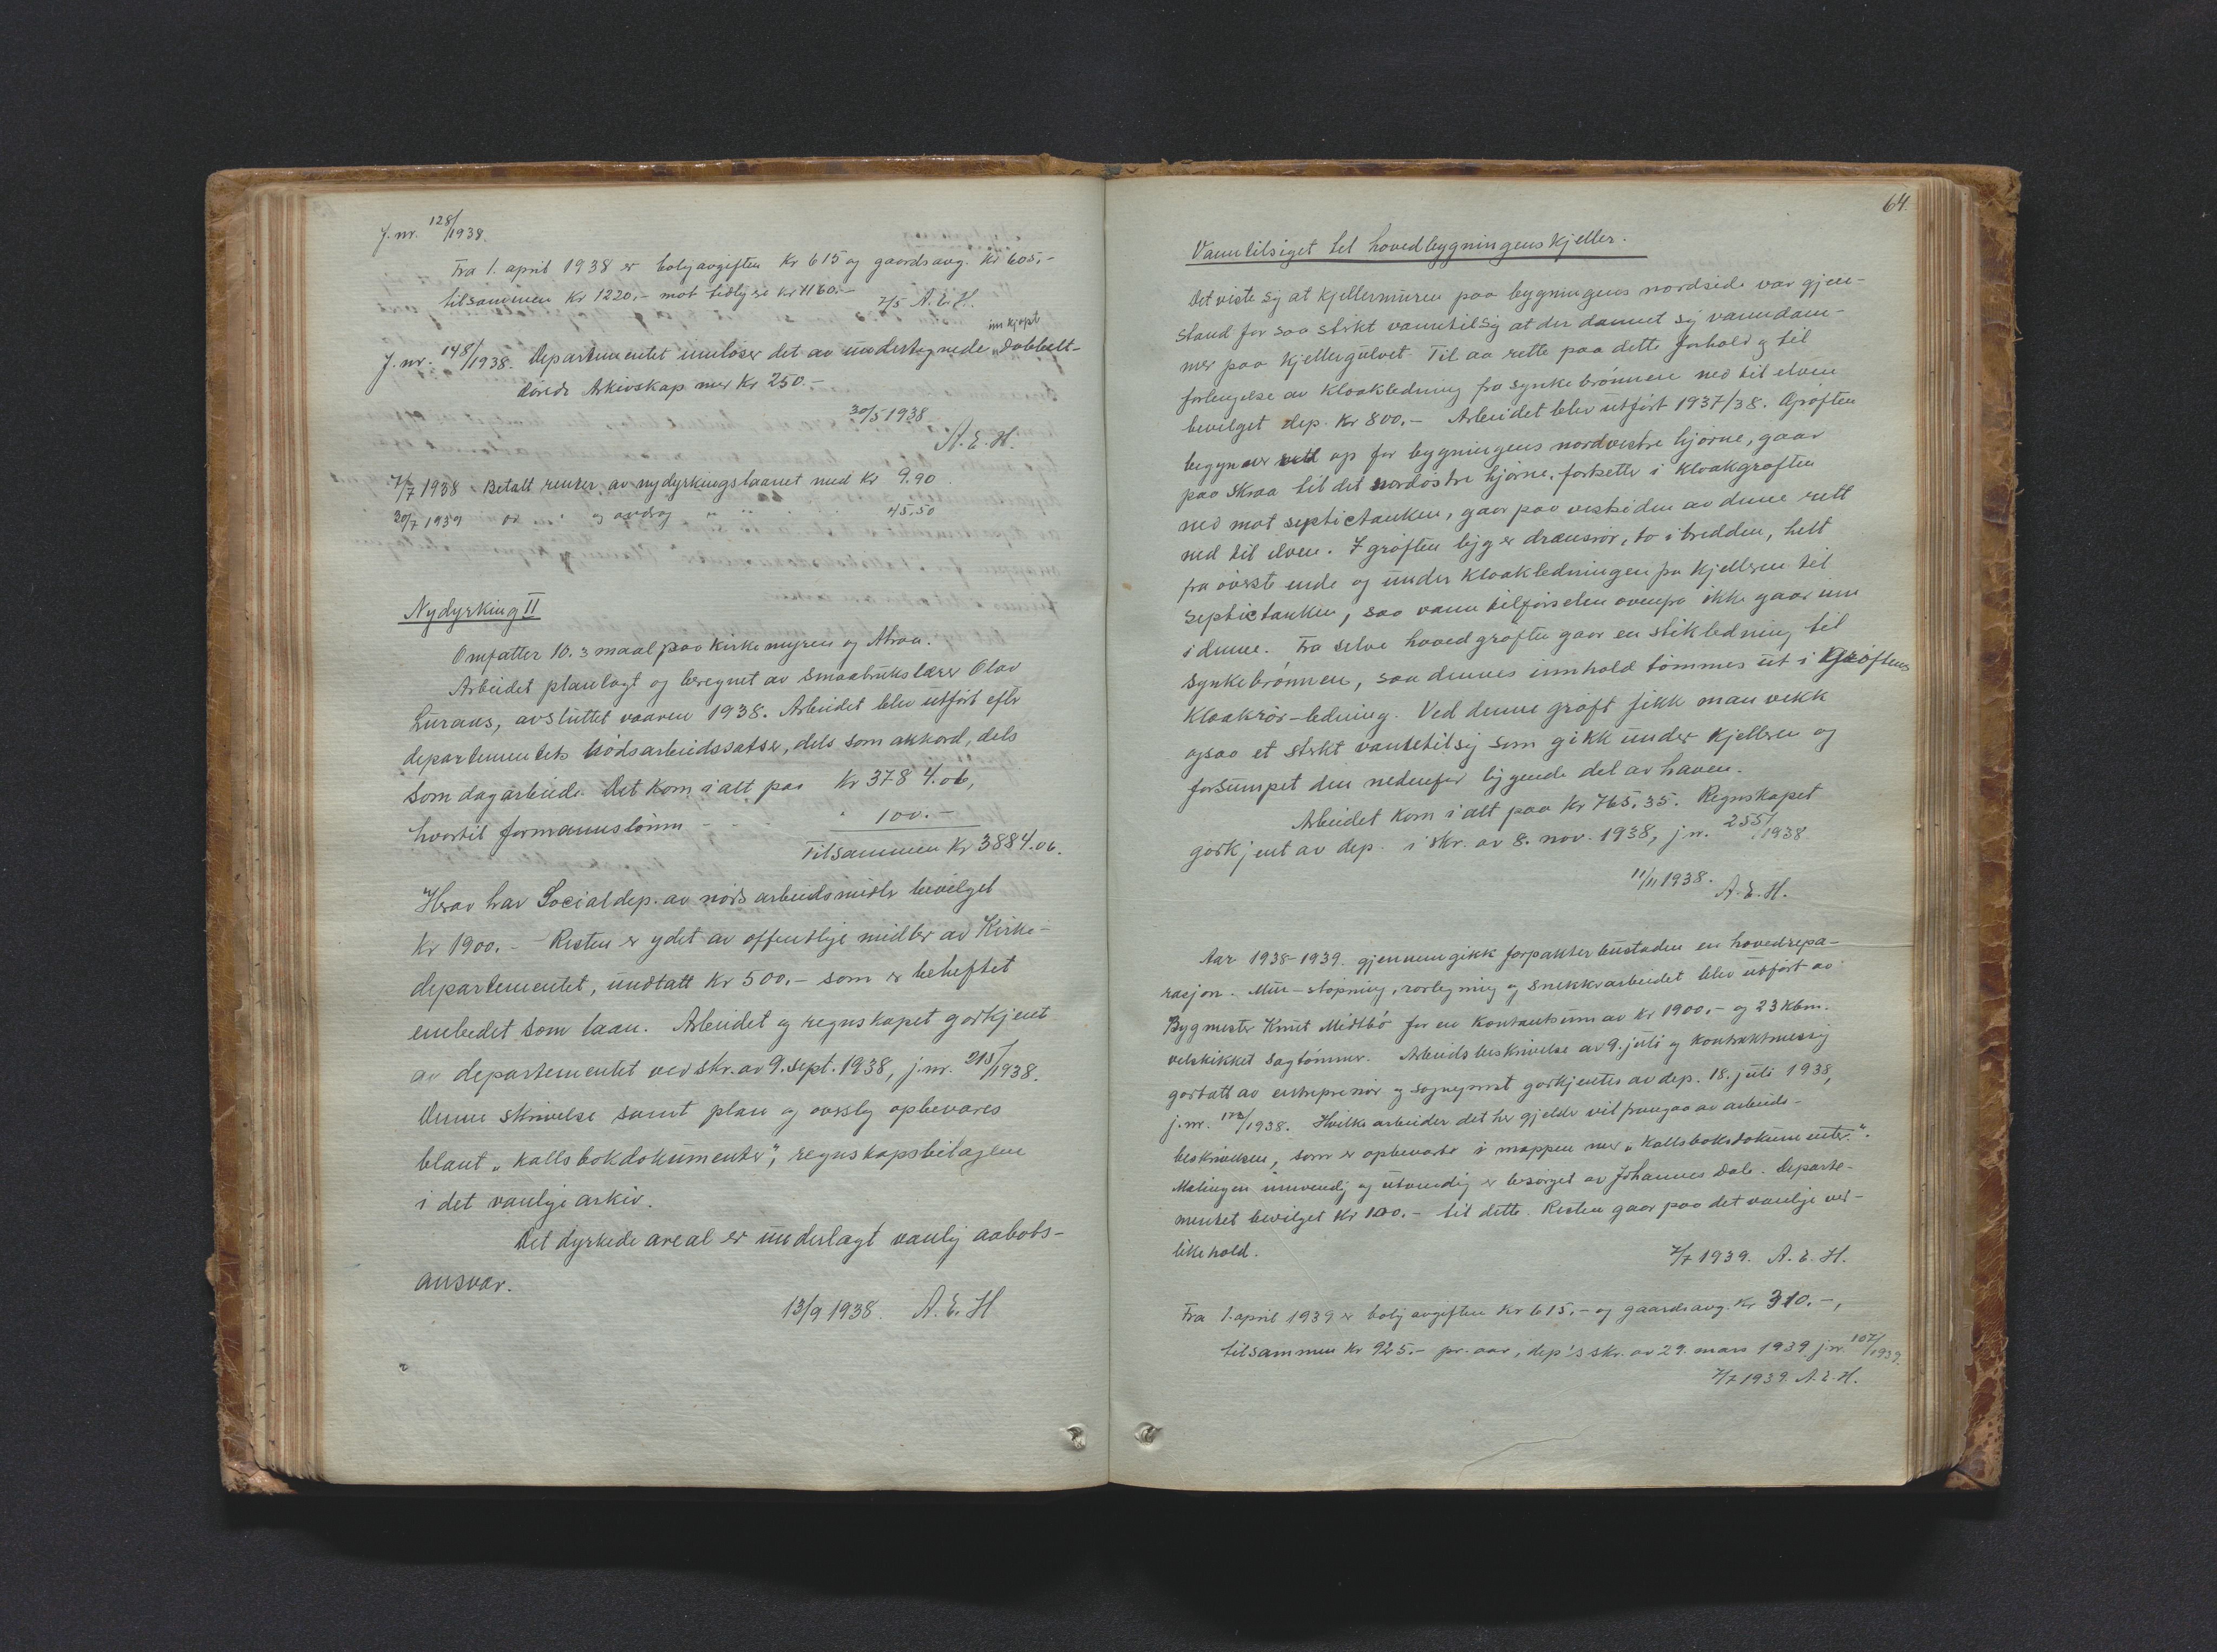 J. nr. 128/1938.
Fra 1. april 1938 er boligavgiften kr 615 og gaardsavg. kr 605,-
tilsammen kr 1220,- mot tidligere kr 1160.-
7/5 A. E. H.
innkjøpt
J. nr. 148/1938. Departementet innløser det av undertegnede "Dobbelt-
Arkivskap mer kr 250.-
30/5 1938
A. E. H.
7/7 1938. Betalt renter av nydyrkingslaanet med kr 9.90
20/7 1939 " " og avdrag " " " " 45,50
Nydyrking II
Omfatter 10.3 maal paa Kirkemyren og
Arbeidet planlagt og beregnet av smaabrukslærer Olav
Luraas, avsluttet vaaren 1938. Arbeidet blev utført efter
departementets nødsarbeidssatser, dels som akkord, dels
som dagarbeide. Det kom i alt paa kr 3784.06,
hvortil formannslønn - - " 100.-
Tilsammen kr 3884.06.
Herav har Socialdep. av nødsarbeidsmidler bevilget
kr 1900.- Resten er ydet av offentlige midler av Kirke-
departementet, undtatt kr 500,- som er beheftet
embedet som laan. Arbeidet og regnskapet godkjent
av departementet ved skr. av 9. sept. 1938, j. nr. 215/1938.
Denne skrivelse samt plan og overslag opbevares
blant "kallsbokdokumenter", regnskapsbilagene
i det vanlige arkiv.
Det dyrkede areal er underlagt vanlig aabots-
ansvar.
13/9 1938. A. E. H
64.
Vanntilsiget til hovedbygningens kjeller.
Det viste sig at kjellermuren paa bygningens nordside var gjen-
stand for saa sterkt vanntilsig at der dannet sig vanndam-
mer paa kjellergulvet. Til aa rette paa dette forhold og til
forlengelse av kloakledning fra synkebrønnen ned til elven
bevilget dep. kr 800,- Arbeidet blev utført 1937/38. Grøften
begynner rett op for bygningens nordvestre hjørne, gaar
paa skraa til det nordøstre hjørne, fortsetter i kloakgrøften
ned mot septictanken, gaar paa vestsiden av denne rett
ned til elven. I grøften ligger drænsrør, to i bredden, helt
fra øverste ende og under kloakledningen fra kjelleren til
septictanken, saa vanntilførselen ovenfra ikke gaar inn
i denne. Fra selve hovedgrøften gaar en stikledning til
synkebrønnen, saa dennes innhold tømmes ut i Grøftens
kloakrør-ledning. Ved denne grøft fikk man vekk
ogsaa et sterkt vanntilsig som gikk under kjelleren og
forsumpet den nedenfor liggende del av haven.
Arbeidet kom i alt paa kr 765,35. Regnskapet
godkjent av dep. i skr. av 8. nov. 1938, j. nr. 255/1938
11/11 1938.
A. E. H.
Aar 1938-1939 gjennemgikk forpakterbustaden en hovedrepa-
rasjon. Mur-støpning, rørlegning og snekkerarbeidet blev utført av
Bygmester Knut Midtbø for en kontantsum av kr 1900,- og 23 kbm.
velskikket sagtømmer. Arbeidsbeskrivelse av 9. juli og kontraktmessig
godtatt av entreprenør og sogneprest godkjentes av dep. 18. juli 1938,
j. nr. /1938. Hvilke arbeider det her gjelder vil fremgaa av arbeids-
beskrivelsen, som er opbevarte i mappen mer "Kallsboksdokumenter".
Malingen innvendig og utvendig er besørget av Johannes Dale. Departe-
mentet bevilget kr 100.- til dette. Resten gaar paa det vanlige ved-
likehold.
7/7 1939. A. E. H.
Fra 1. april 1939 er boligavgiften kr 615,- og gaardsavg. kr 310.-,
tilsammen kr 925.- pr. aar, dep's skr. av 29. mars 1939 j. nr. 107/1939.
7/7 1939. A. E. H.